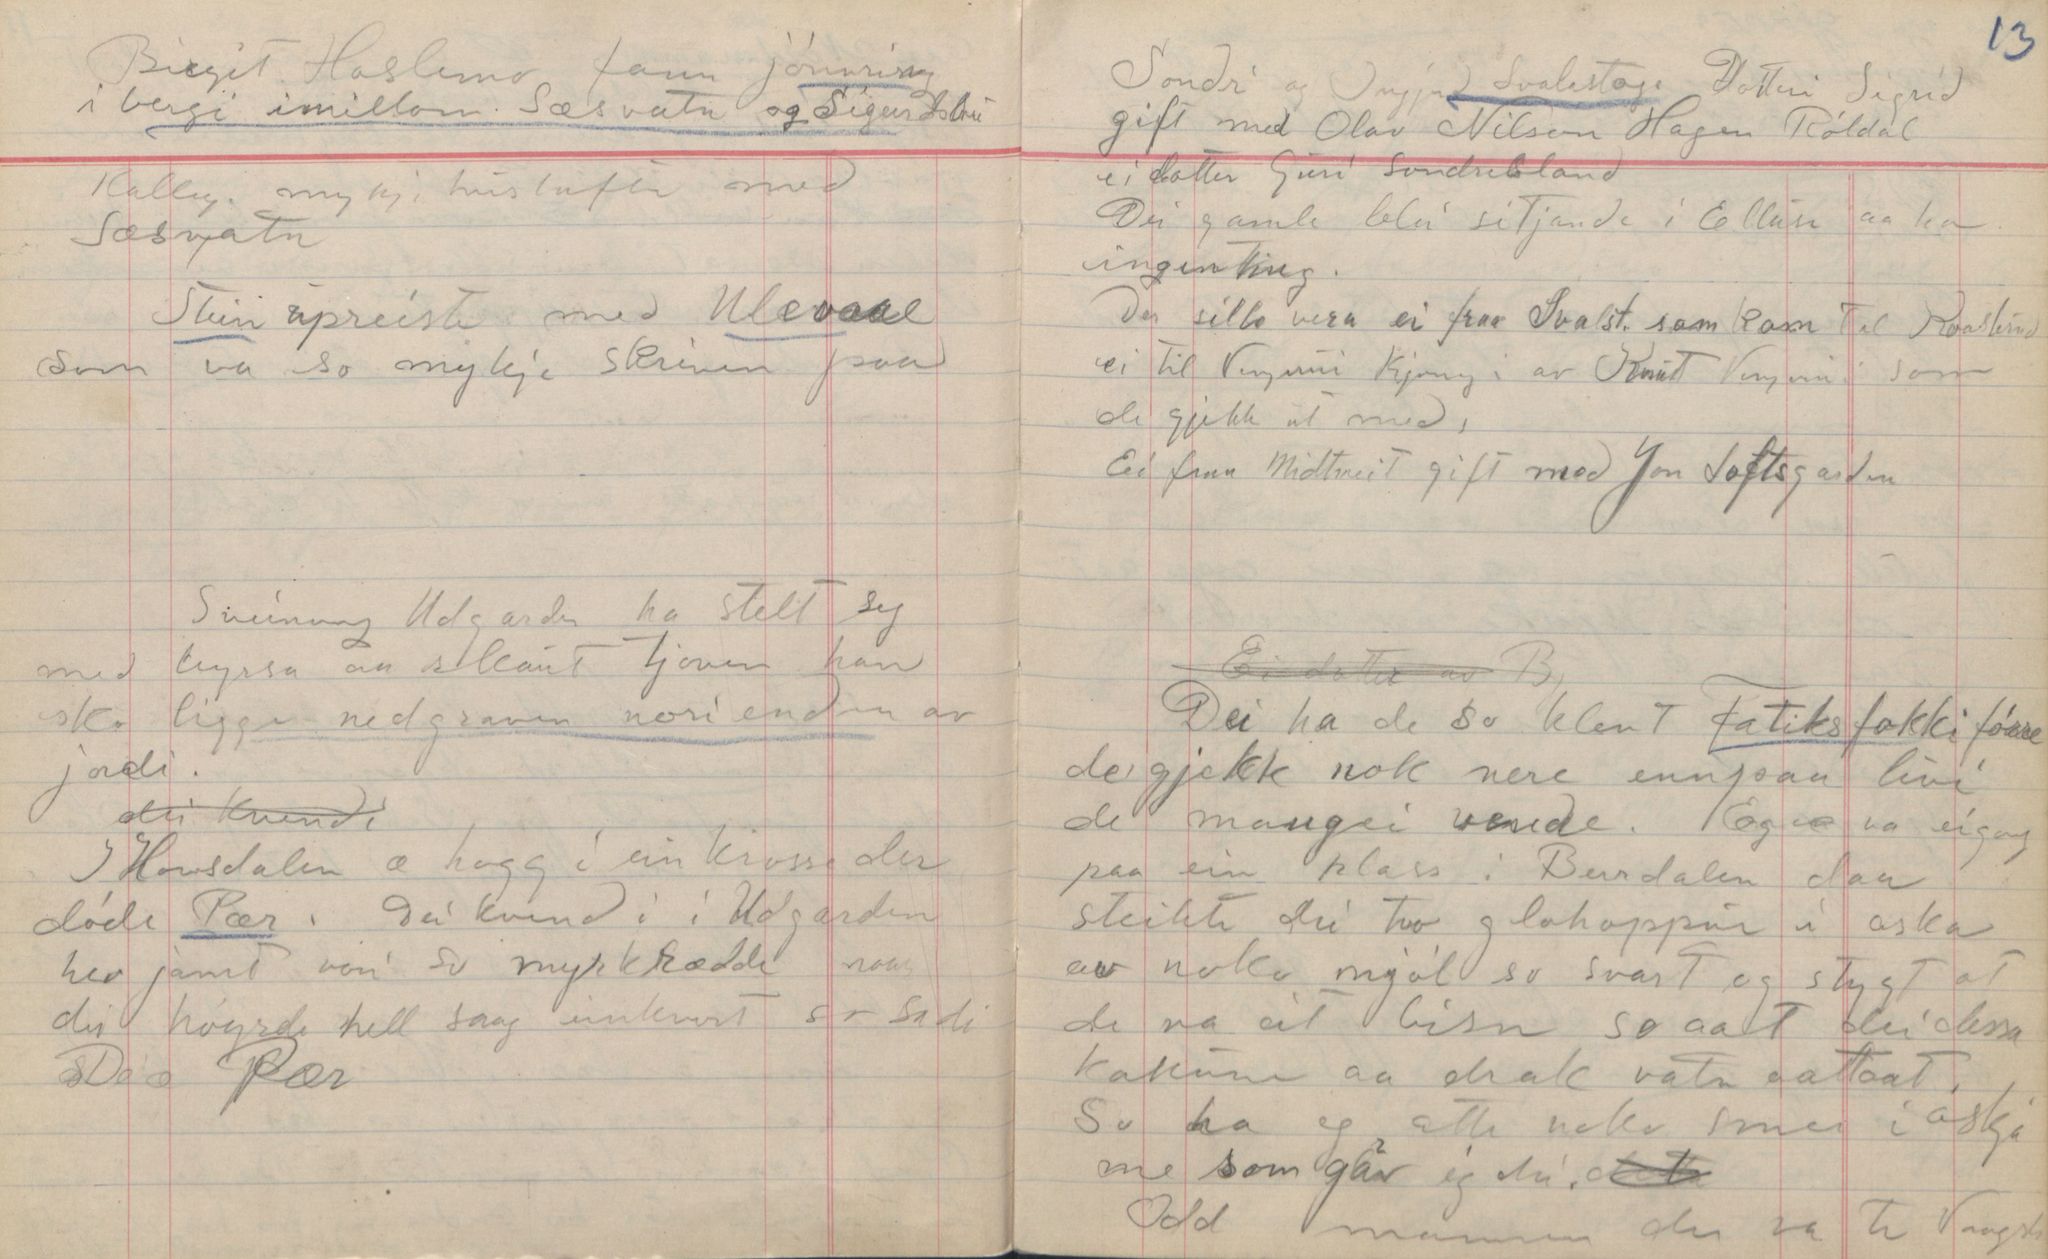 Birgit Haslemo fann jónnring
i bergi imillom Sæsvatn og Sigurdsbui
Kalleg. mykji hustufte med
Sæsvatn
Stein upreiste med Ulevaae
som va so mykje skriven paa
Sveinung Udgarden ha stelt seg
med byrsa aa skaut Tjoven han
ska ligge nedgraven nori enden av
jordi.
dei kvendi
I Hovsdalen æ hogg i ein krosse der
døde Pær. Dei kvendi i Udgarden
hev jamt vori so myrkrædde naar
dei høyrde hell saag einkvart so sa di
Dæ æ Pær
13
Sondri og Ingjerd Svalestoge Dotteri Sigrid
gift med Olav Nilson Hagen Róldal
ei dotter Guri Sondrebland
Dei gamle blei sitjande i Ellusi aa ha
ingenting.
Der sille vera ei fraa Svalst. som kom til Raaslund
ei til Vinjuii Kjeng i av Knut Vinjuii som
de gjekk ut med,
Ei fraa Midtveit gift med Jon Loftsgarden
Ei dotter av B,
Dei ha de so klent Fatiksfokki fóare
de gjekk nok nere ennpaa livi
de mangei vende. Eg va eigong
paa ein plass i Berdalen daa
steikte dei two glohoppur i oska
av noko mjól so svart og stygt at
de va eit bisn so aat dei dessa
kakune aa drak vatn aattaat.
So ha eg ette noko smer i askja
me som gav eg dei.
Odd mannen der va te Vaagsli